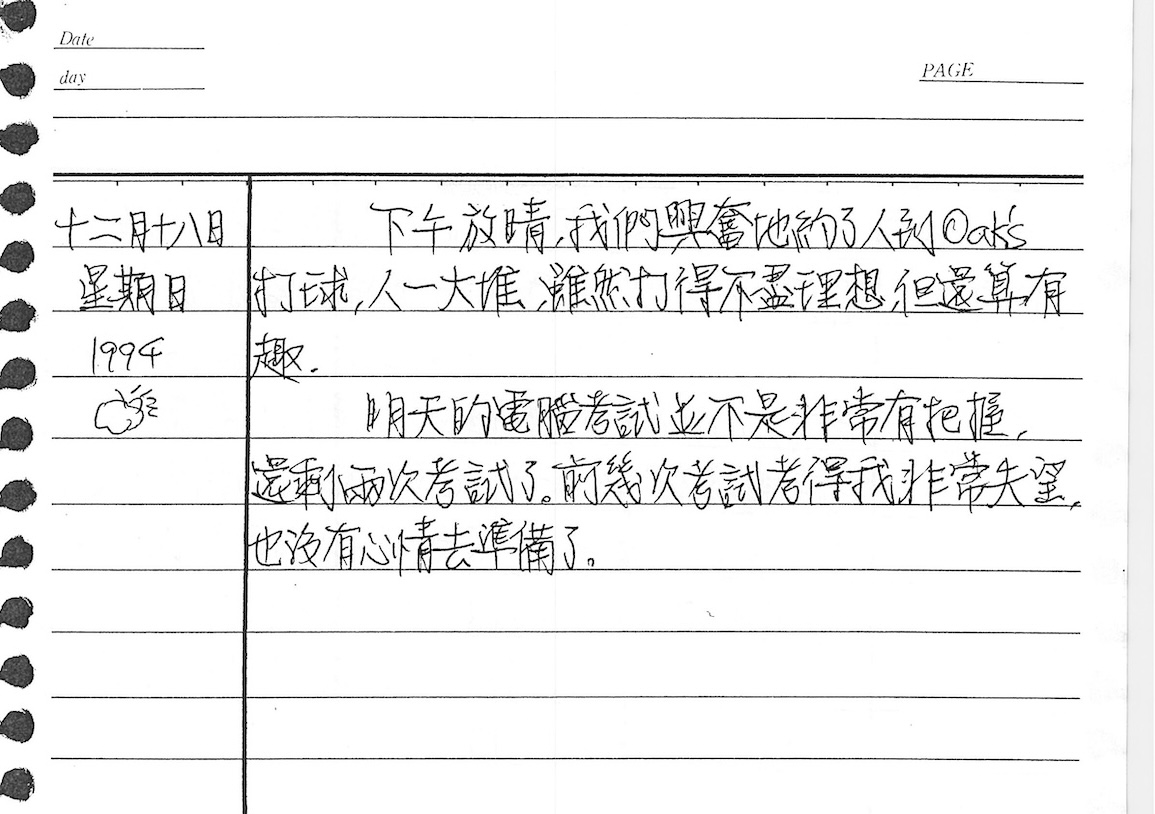 Date
day
PAGE
十二月十八日
星期日
1994
下午放晴,我們興奮地約了人到Oak's
打球,人一大堆,雖然打得不盡理想但還算有
趣.
明天的電腦考試並不是非常有把握,
還剩兩次考試了。前幾次考試考得我非常失望,
也沒有心情去準備了。